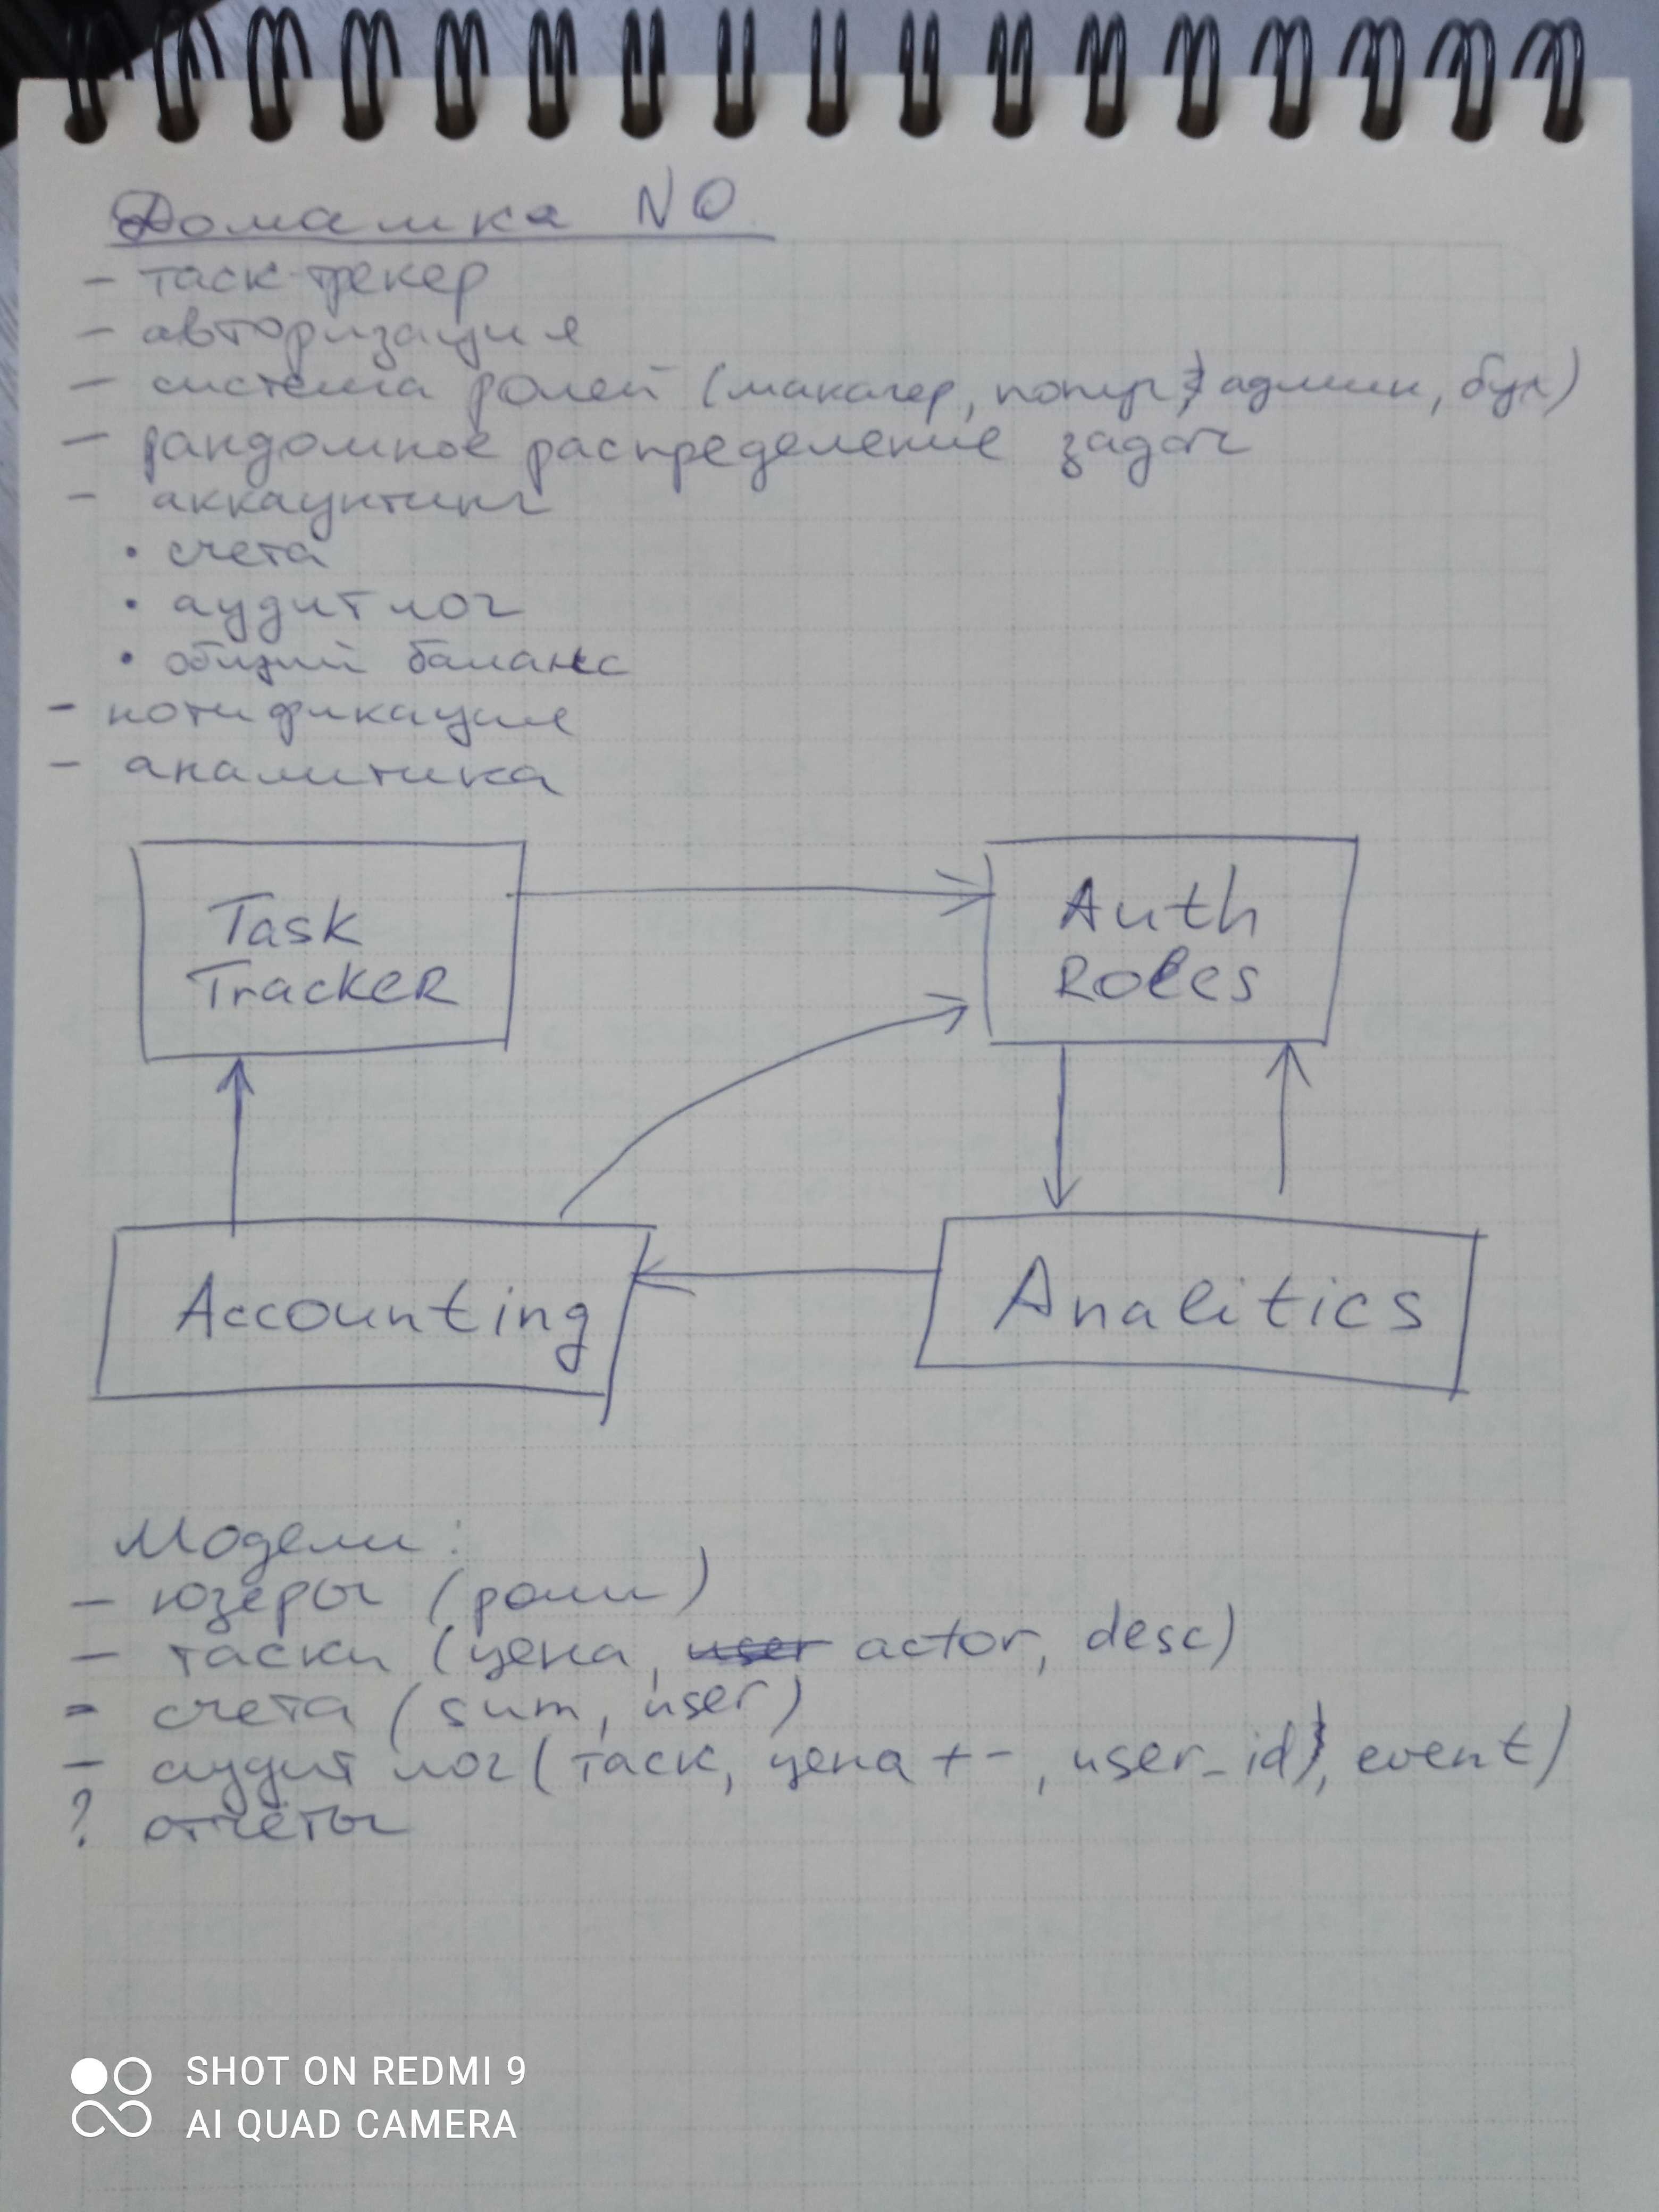 Домашка N0
- таск-трекер
- авторизация
- система ролей (манагер, попуг, админ, бух)
- рандомное распределение задач
- аккаунтинг
• счета
• аудит лог
• общий баланс
- нотификации
- аналитика
Task
Tracker
Auth
Roles
Accounting
Analitics
Модели:
- юзеры (роли)
- таски (цена, user actor, desc)
- счета (sum, user)
- аудит лог (таск, цена + -, user_id, event)
? отчёты
SHOT ON REDMI 9
AI QUAD CAMERA